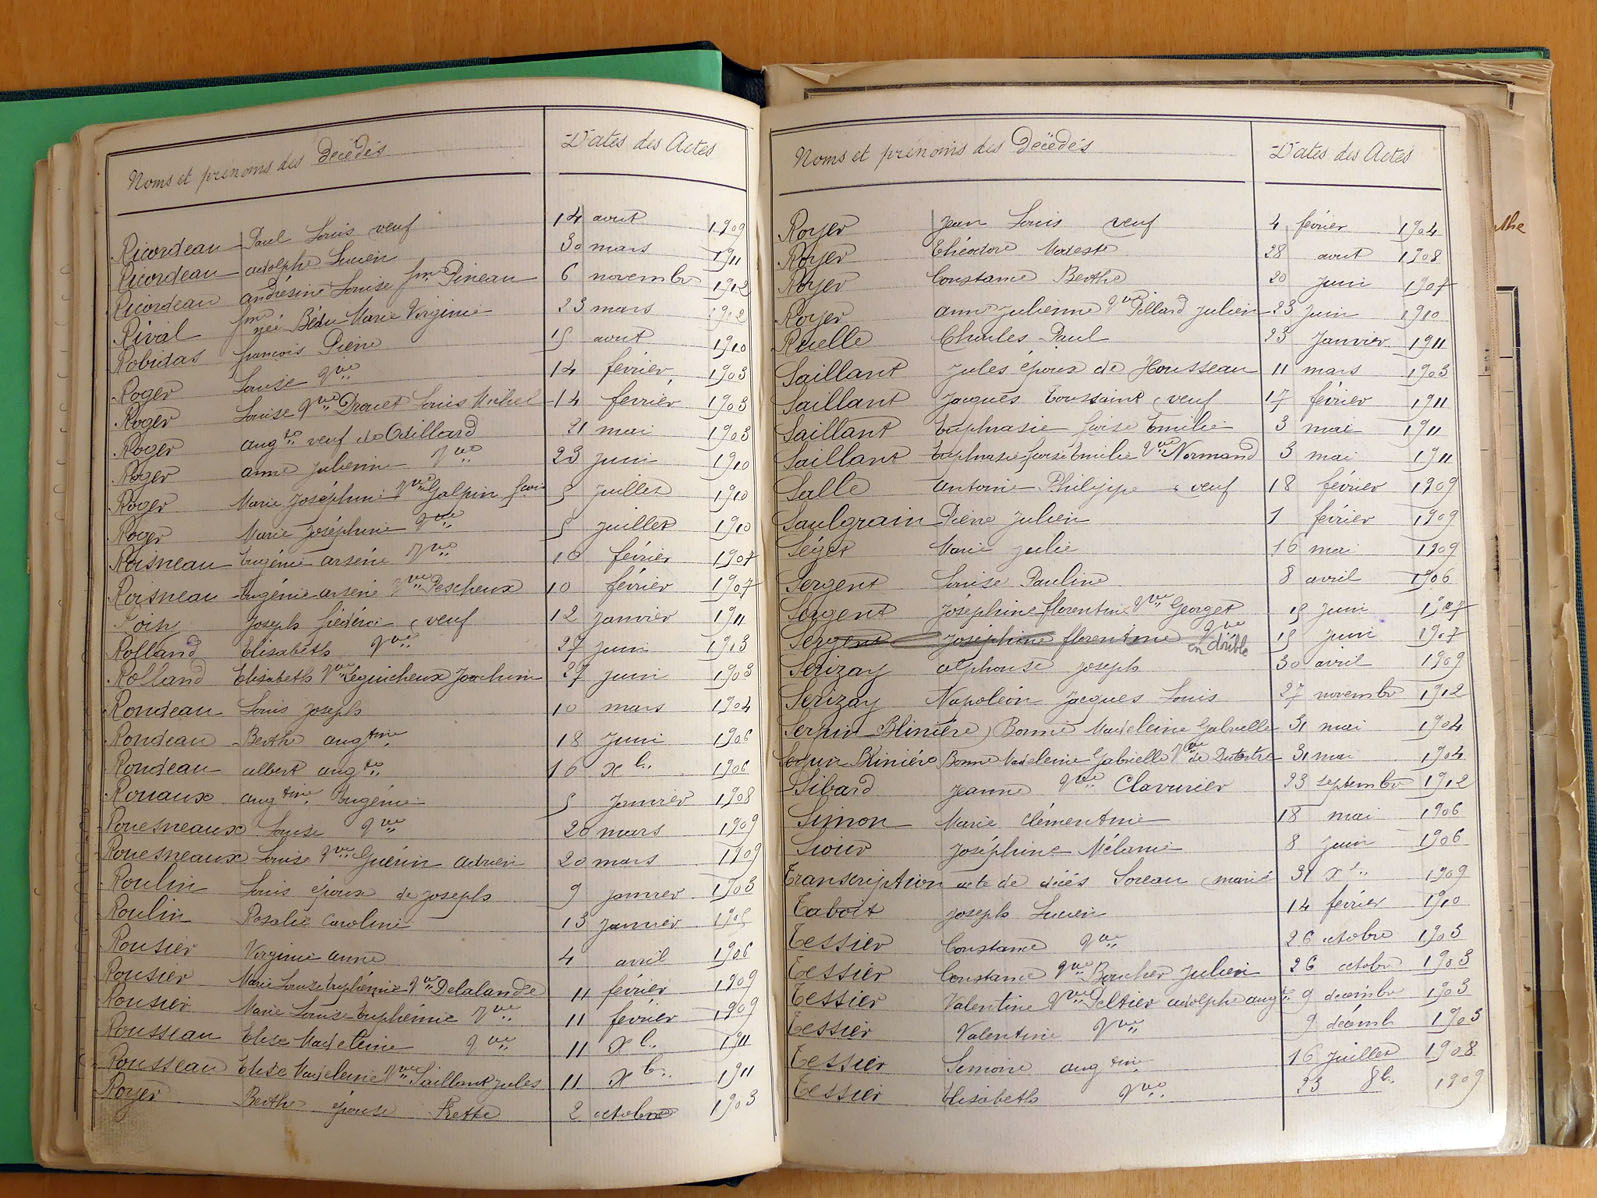 Noms et prénoms des Décédés Dates des Actes
Ricordeau Paul Louis veuf 14 aout 1909
Ricordeau adolphe Lucien 30 mars 1911
Ricordeau andrésine Louise fme Pineau 6 novembre 1912
Rival fme née Bédu Marie Virginie 23 mars 1902
Robidas françois Pierre 15 aout 1910
Roger Louise Vve 14 février 1903
Roger Louise Vve Drouet Louis Michel 14 février 1903
Roger augte veuf de Odillard 31 mai 1903
Roger anne julienne Vve 23 juin 1910
Roger Marie Joséphine Vve Galpin 5 juillet 1910
Roger Marie Joséphine Vve 5 juillet 1910
Roisneau Eugénie arsène Vve 10 février 1907
Roisneau Eugénie arsène Vve Pescheux 10 février 1907
Joseph frédéric veuf 12 janvier 1911
Rolland Elisabeth Vve 27 juin 1913
Rolland Elisabeth Vve Leguicheux Joachim 27 juin 1903
Rondeau Louis joseph 10 mars 1904
Rondeau Berthe augtine 18 Juin 1906
Rondeau albert augte 16 Xb. 1906
Rouaux augtine Eugénie 5 Janvier 1908
Rouesneaux Louise Vve 20 mars 1909
Rouesneaux Louise Vve Guérin adrien 20 mars 1909
Roulin Louis époux de joseph 9 janvier 1903
Roulin Rosalie Caroline 13 Janvier 1905
Rousier Virginie anne 4 avril 1906
Rousier Marie Louise Euphémie Vve Delalande 11 février 1909
Rousier Marie Louise Euphémie Vve 11 février 1909
Rousseau Elise Madeleine Vve 11 Xb. 1911
Rousseau Elise Madeleine Vve Saillant jules 11 Xb. 1911
Royer Berthe épouse Rette 2 octobre 1903
Noms et prénoms des Décédés Dates des Actes
Royer Jean Louis veuf 4 février 1904
Royer Théodore Modeste 28 aout 1908
Royer Constance Berthe 20 Juin 1907
Royer anne Julienne Vve Pillard Julien 23 juin 1910
Ruelle Charles Paul 23 Janvier 1911
Saillant Jules époux de Housseau 11 mars 1903
Saillant Jacques Toussaint veuf 17 février 1911
Saillant Euphrasie Loise Emilie 3 mai 1911
Saillant Euphrasie Loise Emilie Vve Normand 3 mai 1911
Salle antoine Philippe veuf 18 février 1909
Saulgrain Pierre Julien 1 février 1909
Séger Marie julie 16 mai 1909
Sergent Louise Pauline 8 avril 1906
Sergent Joséphine florentine Vve Georget 15 Juin 1907
Sergent Joséphine florentine Vve en double 15 Juin 1907
Serizay alphonse joseph 30 avril 1909
Serizay Napoléon Jacques Louis 27 novembre 1912
Serpin Blinière Bonne Madeleine Gabrielle 31 mai 1904
Bonne Madeleine Gabrielle Vve de Dutertre 31 mai 1904
Sibard Jeanne Vve Clavurier 23 septembre 1912
Simon Marie Clémentine 18 mai 1906
Joséphine Mélanie 8 juin 1906
Transcription acte de décés Soreau marie 31 Xb. 1909
Taboit joseph Lucien 14 février 1910
Tessier Constance Vve 26 octobre 1903
Tessier Constance Vve Boucher Julien 26 octobre 1903
Tessier Valentine Vve Peltier adolphe augte 9 décembre 1903
Tessier Valentine Vve 9 décemb 1903
Tessier Simone augtine 16 juillet 1908
Tessier Elisabeth Vve 23 8b. 1909